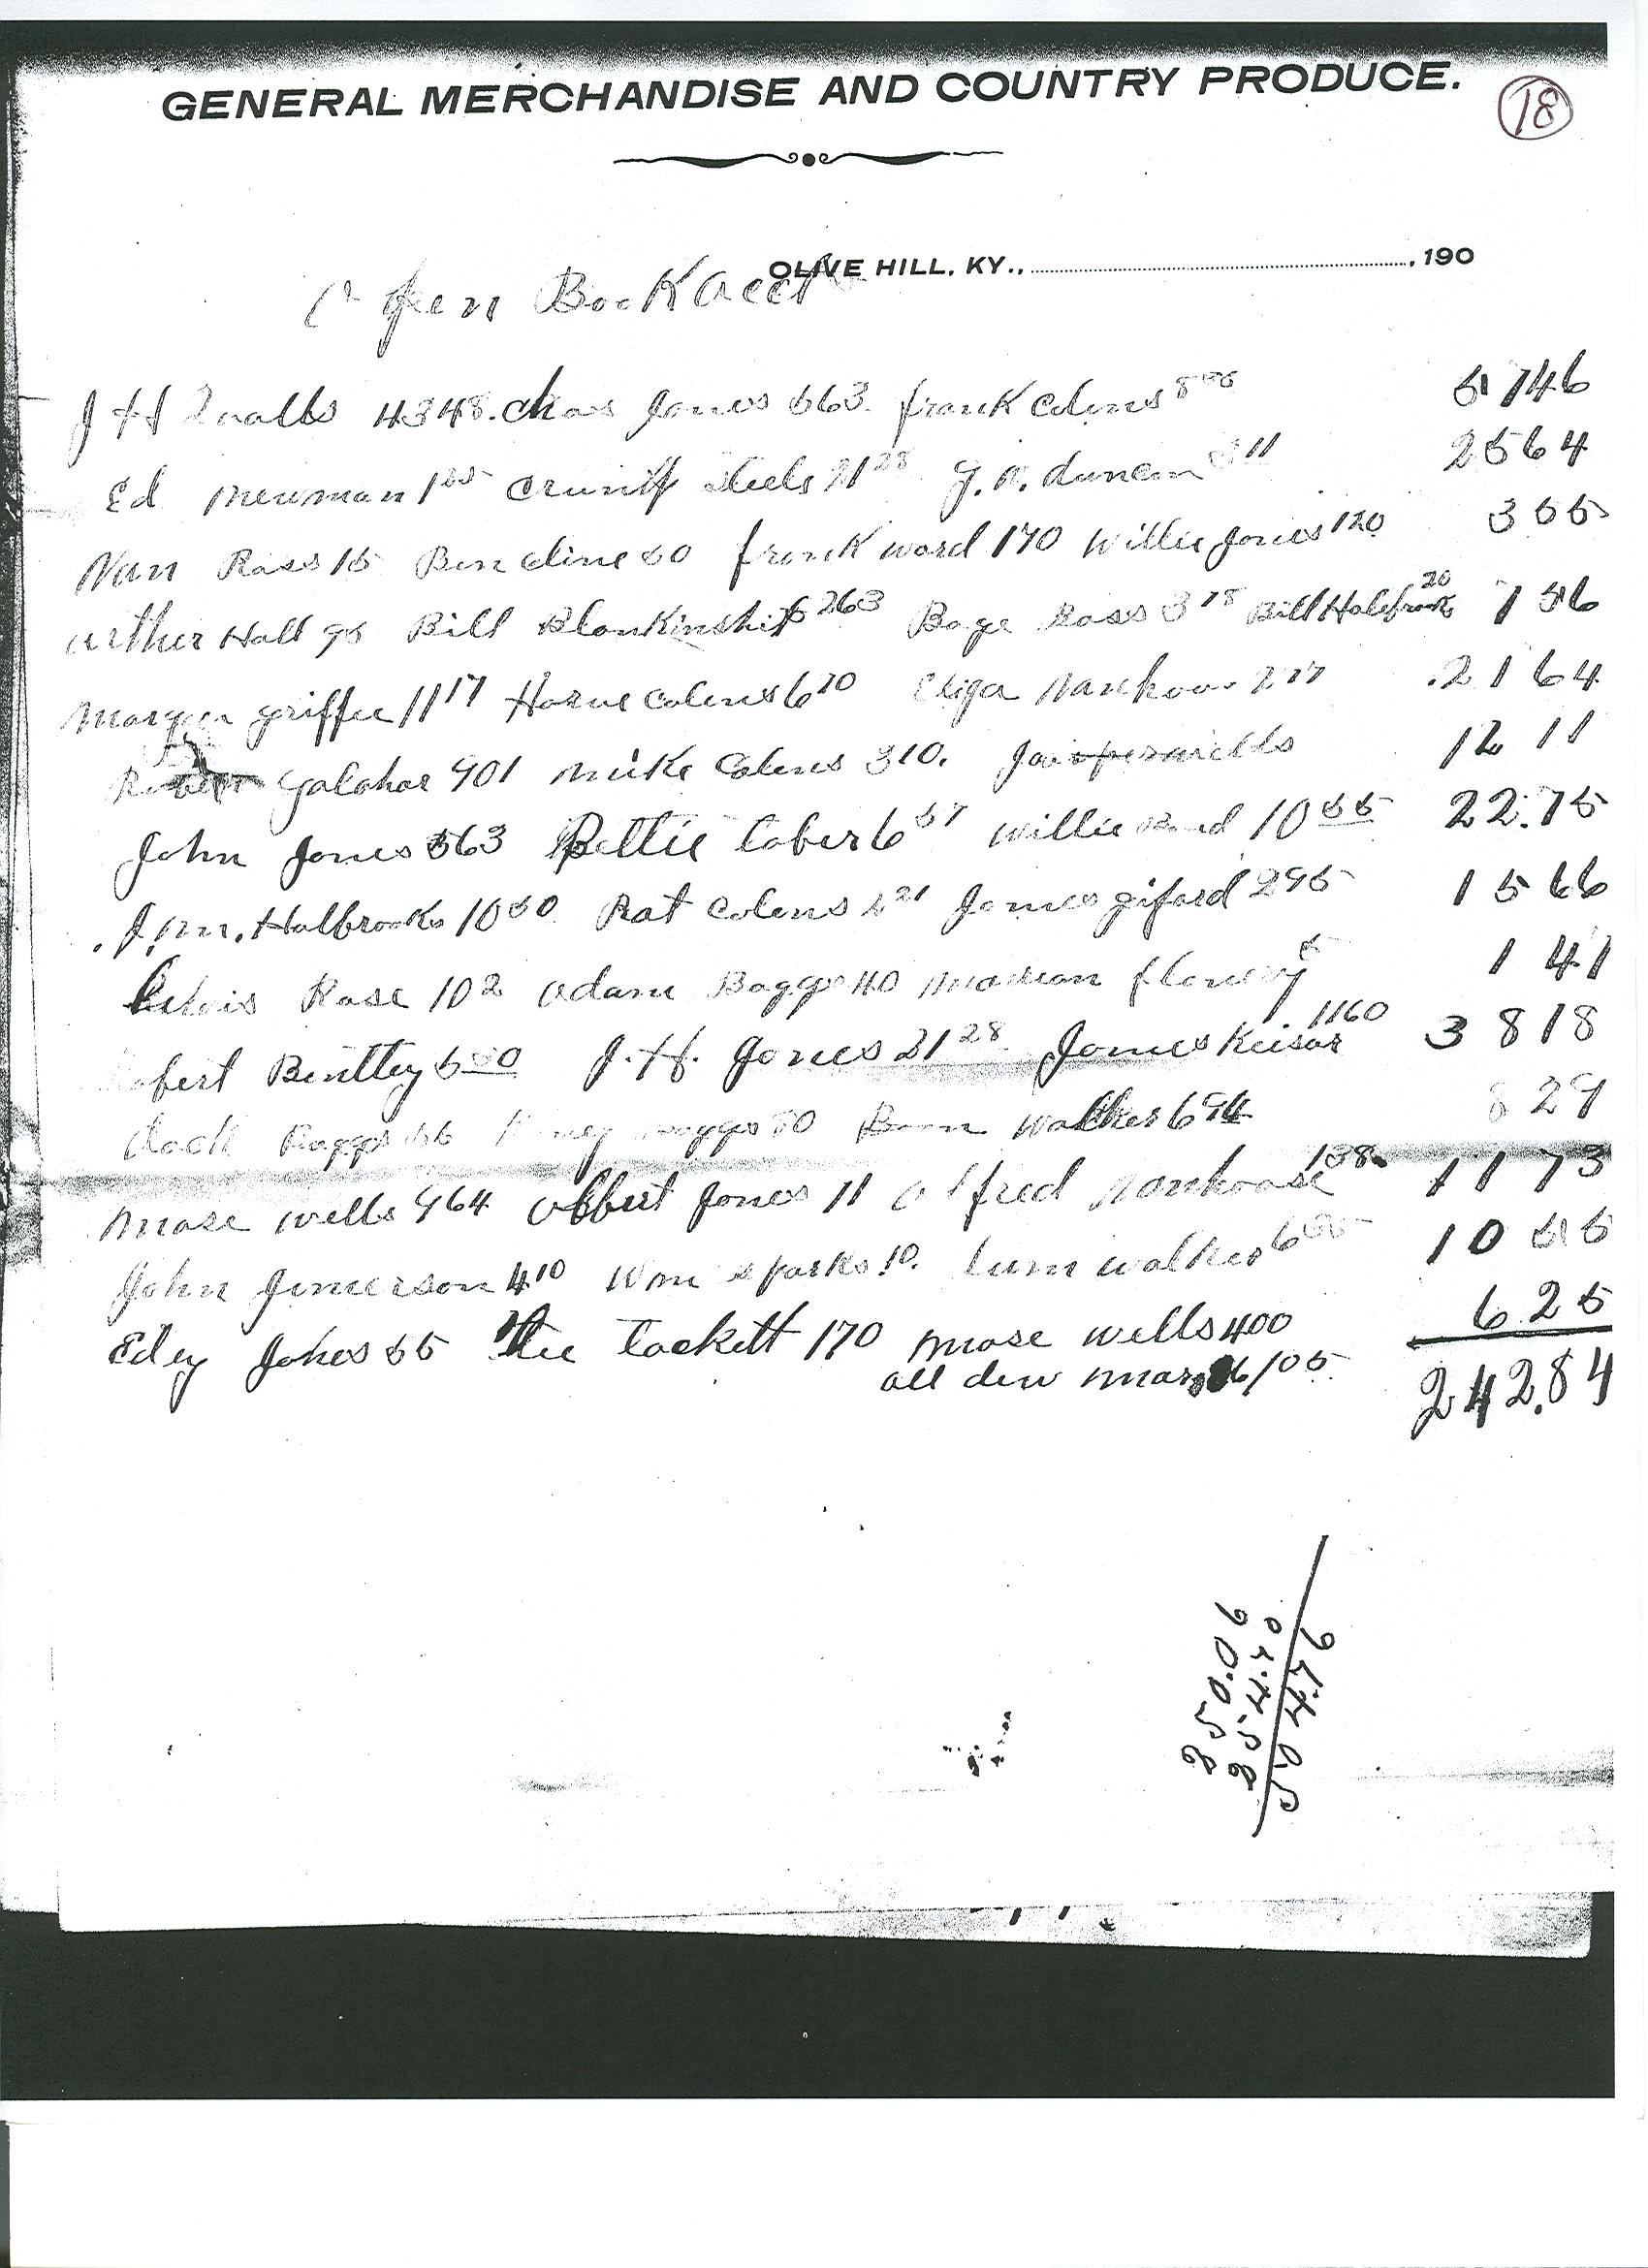 GENERAL MERCHANDISE AND COUNTRY PRODUCE.
18
OLIVE HILL, KY., 190
Open Book Acct
J H Qualls 4348. Chas Jones 563. frank Colins 5746
Ed Newman 125 Steele 2128 Duncan 311 2564
Nan Ross 15 Ben Cline 50 frank ward 170 Willie Jones 120 355
Arther Hall 95 Bill Blankinship 263 Bage Ross 318 Bill Holbrook 20 756
griffee 1117 Colins 670 2164
Robert galahar 901 mike Colens 310. 1211
John Jones 563 Bettie Caber 657 Willie 1055 22.75
J.M. Holbrooks 1050 Pat Colens 221 James giford 295 1566
Rose 102 Adam Baggs 40 141
Robert Bentley 530 J.H. Jones 2128 James Keisar 1160 3818
Baggs Baggs 50 Walker 694 829
Mose wells 964 Albert Jones 11 Alfred 1.98 1173
John Jimerson 410 Wm sparks 10. Lum walker 1055
Edey Jones 55 Tackett 170 Mose wells 400 625
all dew mar 6/05 242.84
250.06
254.70
504.76